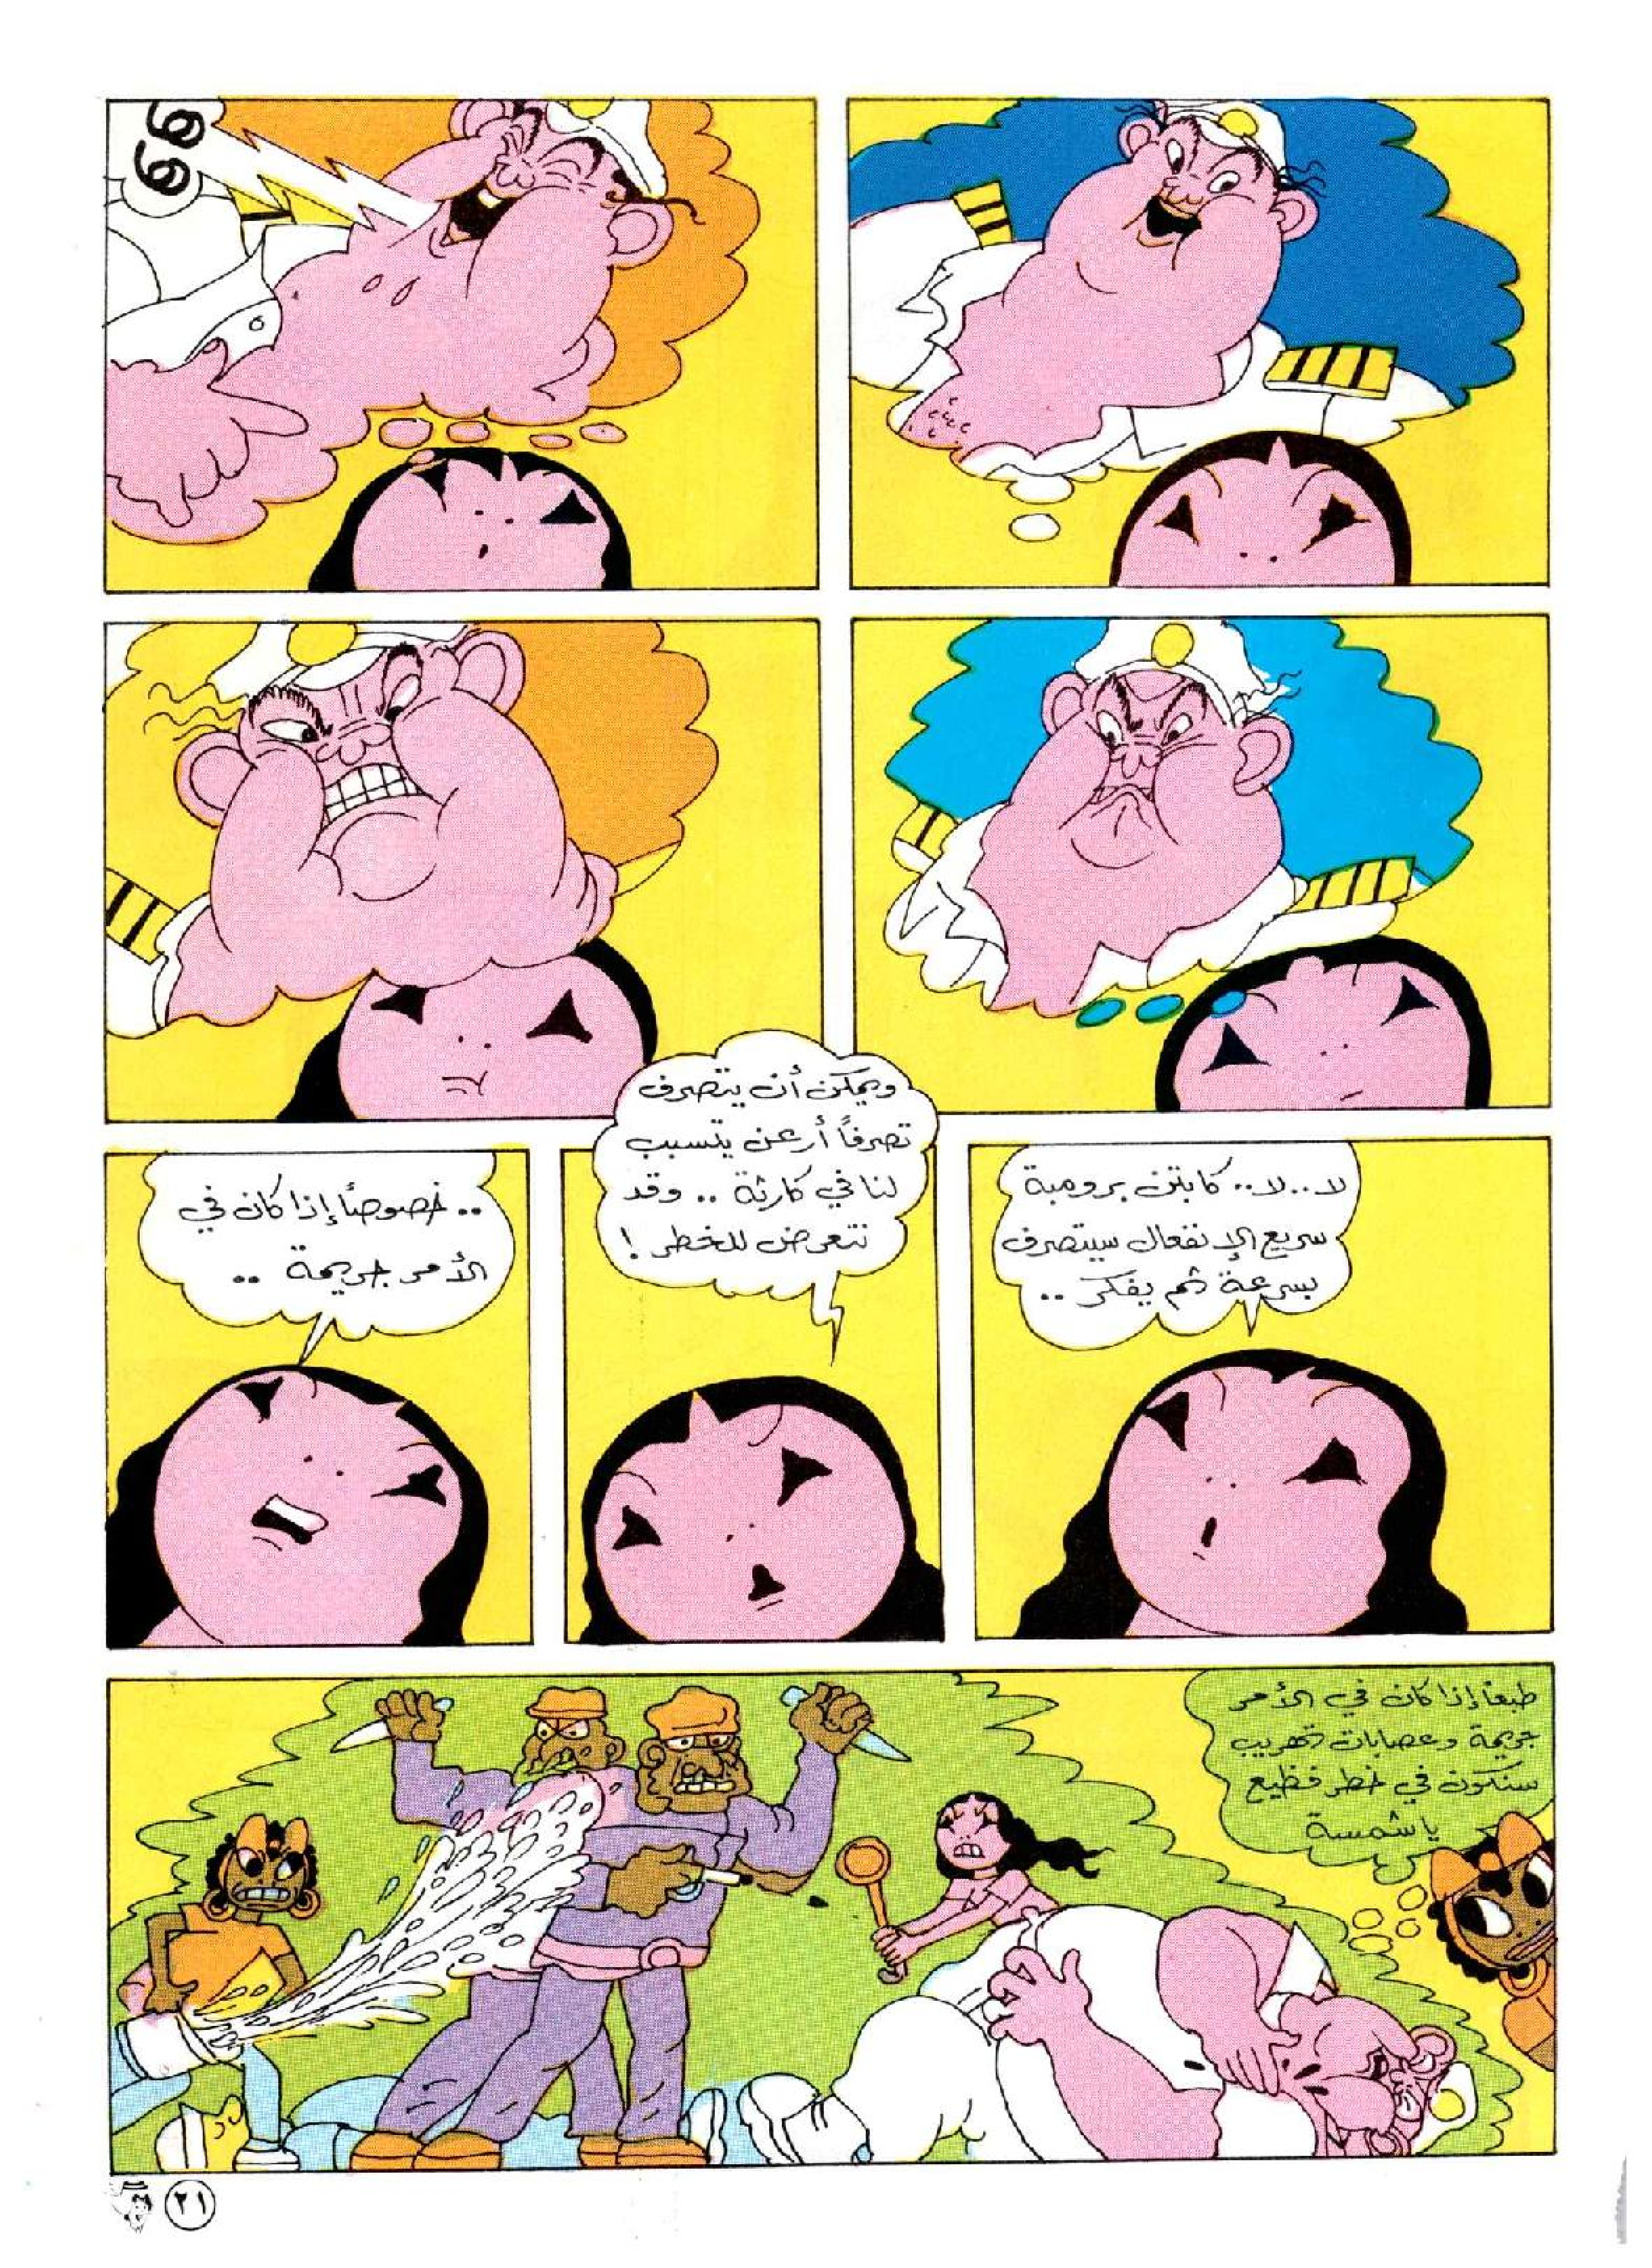 وو
لا.. لا.. كابتن برومبة
سريع الإنفعال سيتصرف
بسرعة ثم يفكر ..
ويمكن أن يتصرف
تصرفاً أرعن يتسبب
لنا في كارثة .. وقد
نتعرض للخطر !
.. خصوصاً إذا كان في
الأمر جريمة ..
طبعاً إذا كان في الأمر
جريمة وعصابات تهريب
سنكون في خطر فظيع
يا شمسة
٢١